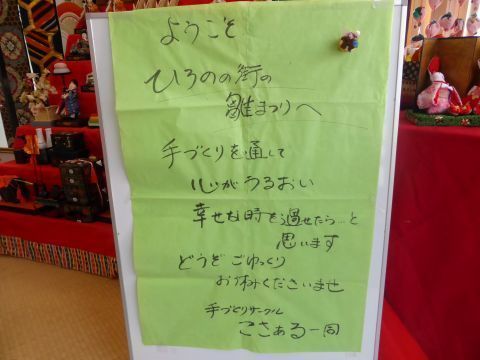 ようこそ
ひろのの街の
雛まつりへ
手づくりを通して
心がうるおい
幸せな時を過せたら…と
思います
どうぞごゆっくり
お休みくださいませ
手づくりサークル
こさある一同